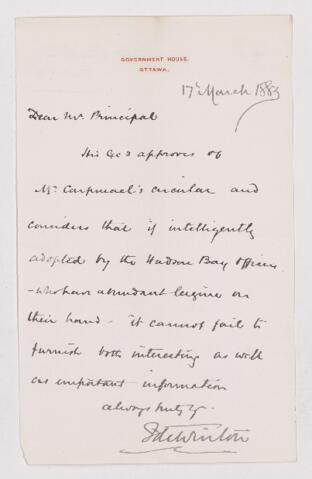 GOVERNMENT HOUSE.
OTTAWA.
17 March 1883
Dear Mr Principal
His Exc approves of
Mr Carpmael's circular and
considers that if intelligently
adopted by the Hudson Bay Officers
- who have abundant leisure on
their hand - it cannot fail to
furnish both interesting as well
as important information
always truly
F de Winton